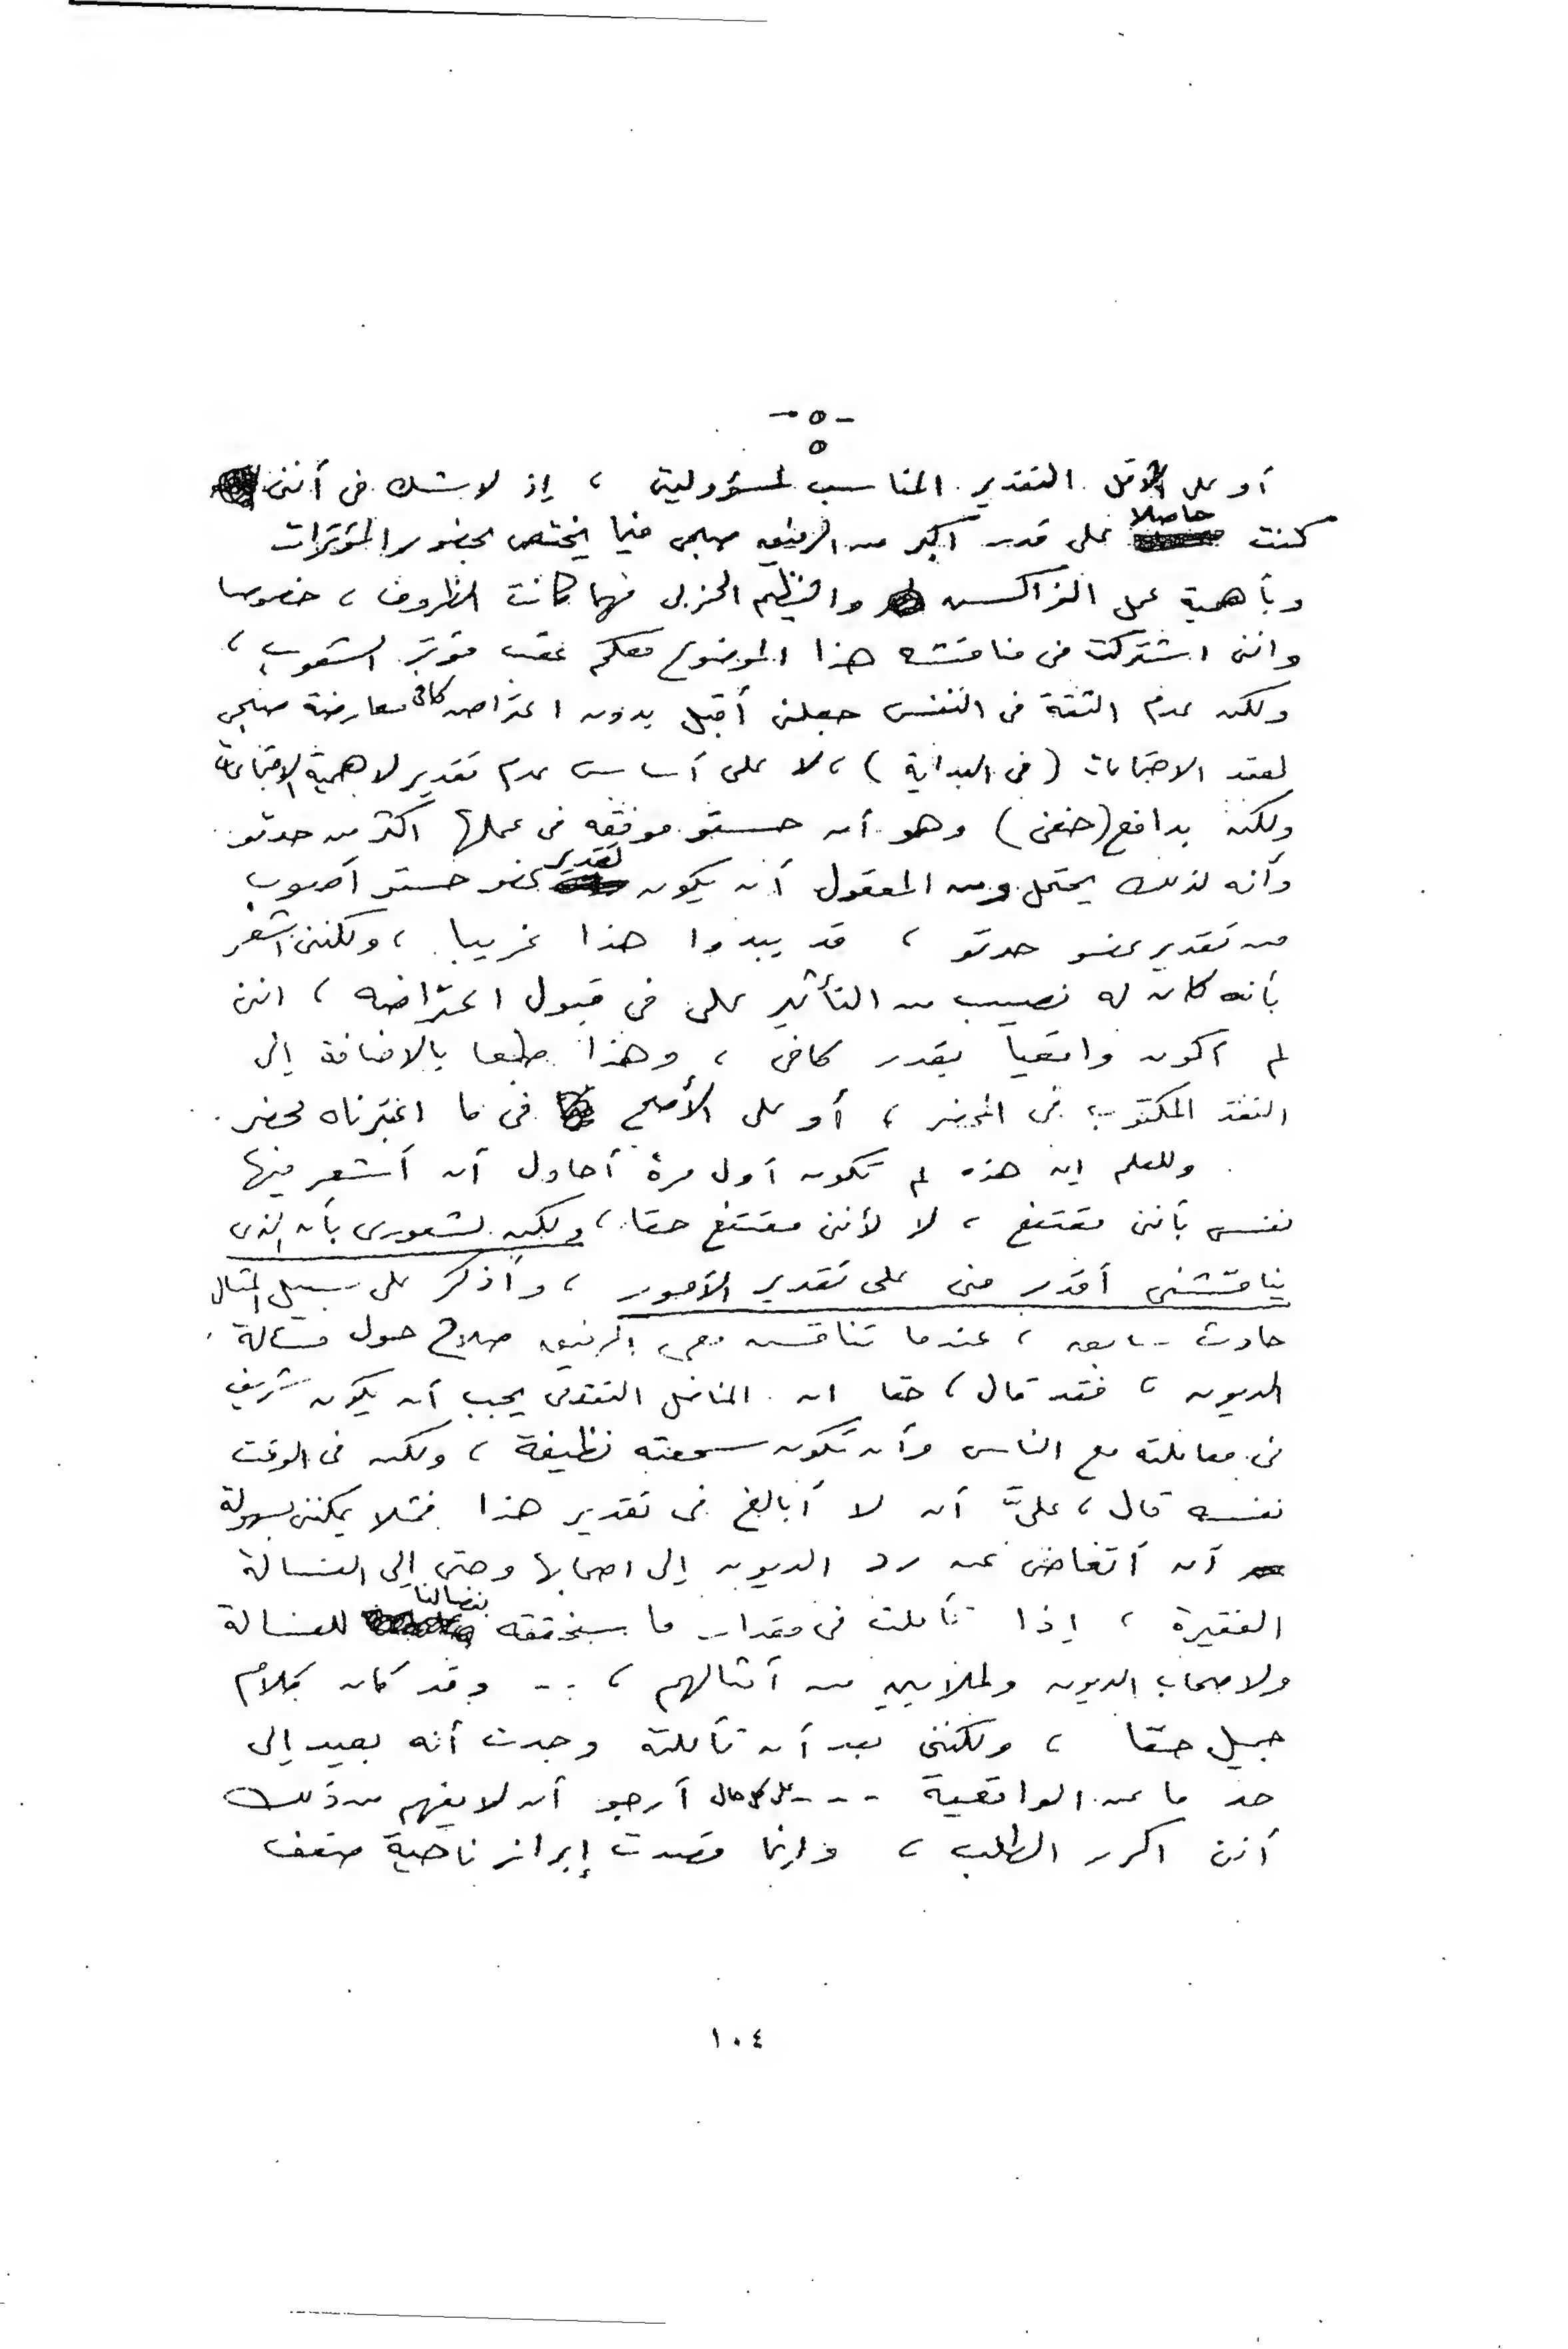 - ٥ -
٥
أو على الأقل التقدير المناسب لمسؤوليتى ، إذ لا شك فى أننى
كنت حاصلا على قدر أكبر من الرفيق صبحى فيما يختص بحضور المؤتمرات
وبأهمية عمل الفراكسن والتنظيم الحزبى مهما كانت الظروف ، خصوصا
واننى اشتركت فى مناقشة هذا الموضوع معكم عقب مؤتمر الشعوب ،
ولكن عدم الثقة فى النفس جعلنى أقبل بدون اعتراض كافى معارضة صبحى
لعقد الاجتماعات ( فى البداية ) ، لا على أساس عدم تقدير لاهمية الاجتماعات
ولكن بدافع (خفى) وهو أن حستو موفقه فى عملها اكثر من حدتو
وأنه لذلك يحتمل ومن المعقول أن يكون تقدير عضو حستو أصوب
من تقدير عضو حدتو ، قد يبدوا هذا غريبا ، ولكننى اشعر
بأنه كان له نصيب من التأثير على فى قبول اعتراضه ، اننى
لم أكون واقعياً بقدر كافى ، وهذا طبعا بالاضافة إلى
النقد المكتوب فى المحضر ، أو على الأصح فى ما اعتبرناه محضر .
وللعلم ان هذه لم تكون أول مرة أحاول أن أشعر فيها
نفسى بأننى مقتنع ، لا لأننى مقتنع حقا ، ولكن لشعورى بأن الذى
يناقشنى أقدر منى على تقدير الأمور ، وأذكر على سبيل المثال
حادث سابق ، عندما تناقش معى الرفيق صلاح حول مسألة
الديون ، فقد قال ، حقا ان المناضل التقدمى يجب أن يكون شريف
فى معاملته مع الناس وأن تكون سمعته نظيفة ، ولكن فى الوقت
نفسه قال ، علىَّ أن لا أبالغ فى تقدير هذا فمثلا يمكننى بسهولة
أن أتغاضى عن رد الديون إلى اصحابها وحتى إلى الغسالة
الفقيرة ، إذا تأملت فى مقدار ما سيحققه نضالنا للغسالة
ولاصحاب الديون ولملايين من أمثالهم ، .. وقد كان كلام
جميل حقا ، ولكننى بعد أن تأملته وجدت أنه بعيد إلى
حد ما عن الواقعية - - - على كل حال أرجو أن لا يفهم من ذلك
أننى اكرر الطلب ، وإنما قصدت إبراز ناحية ضعف
١٠٤